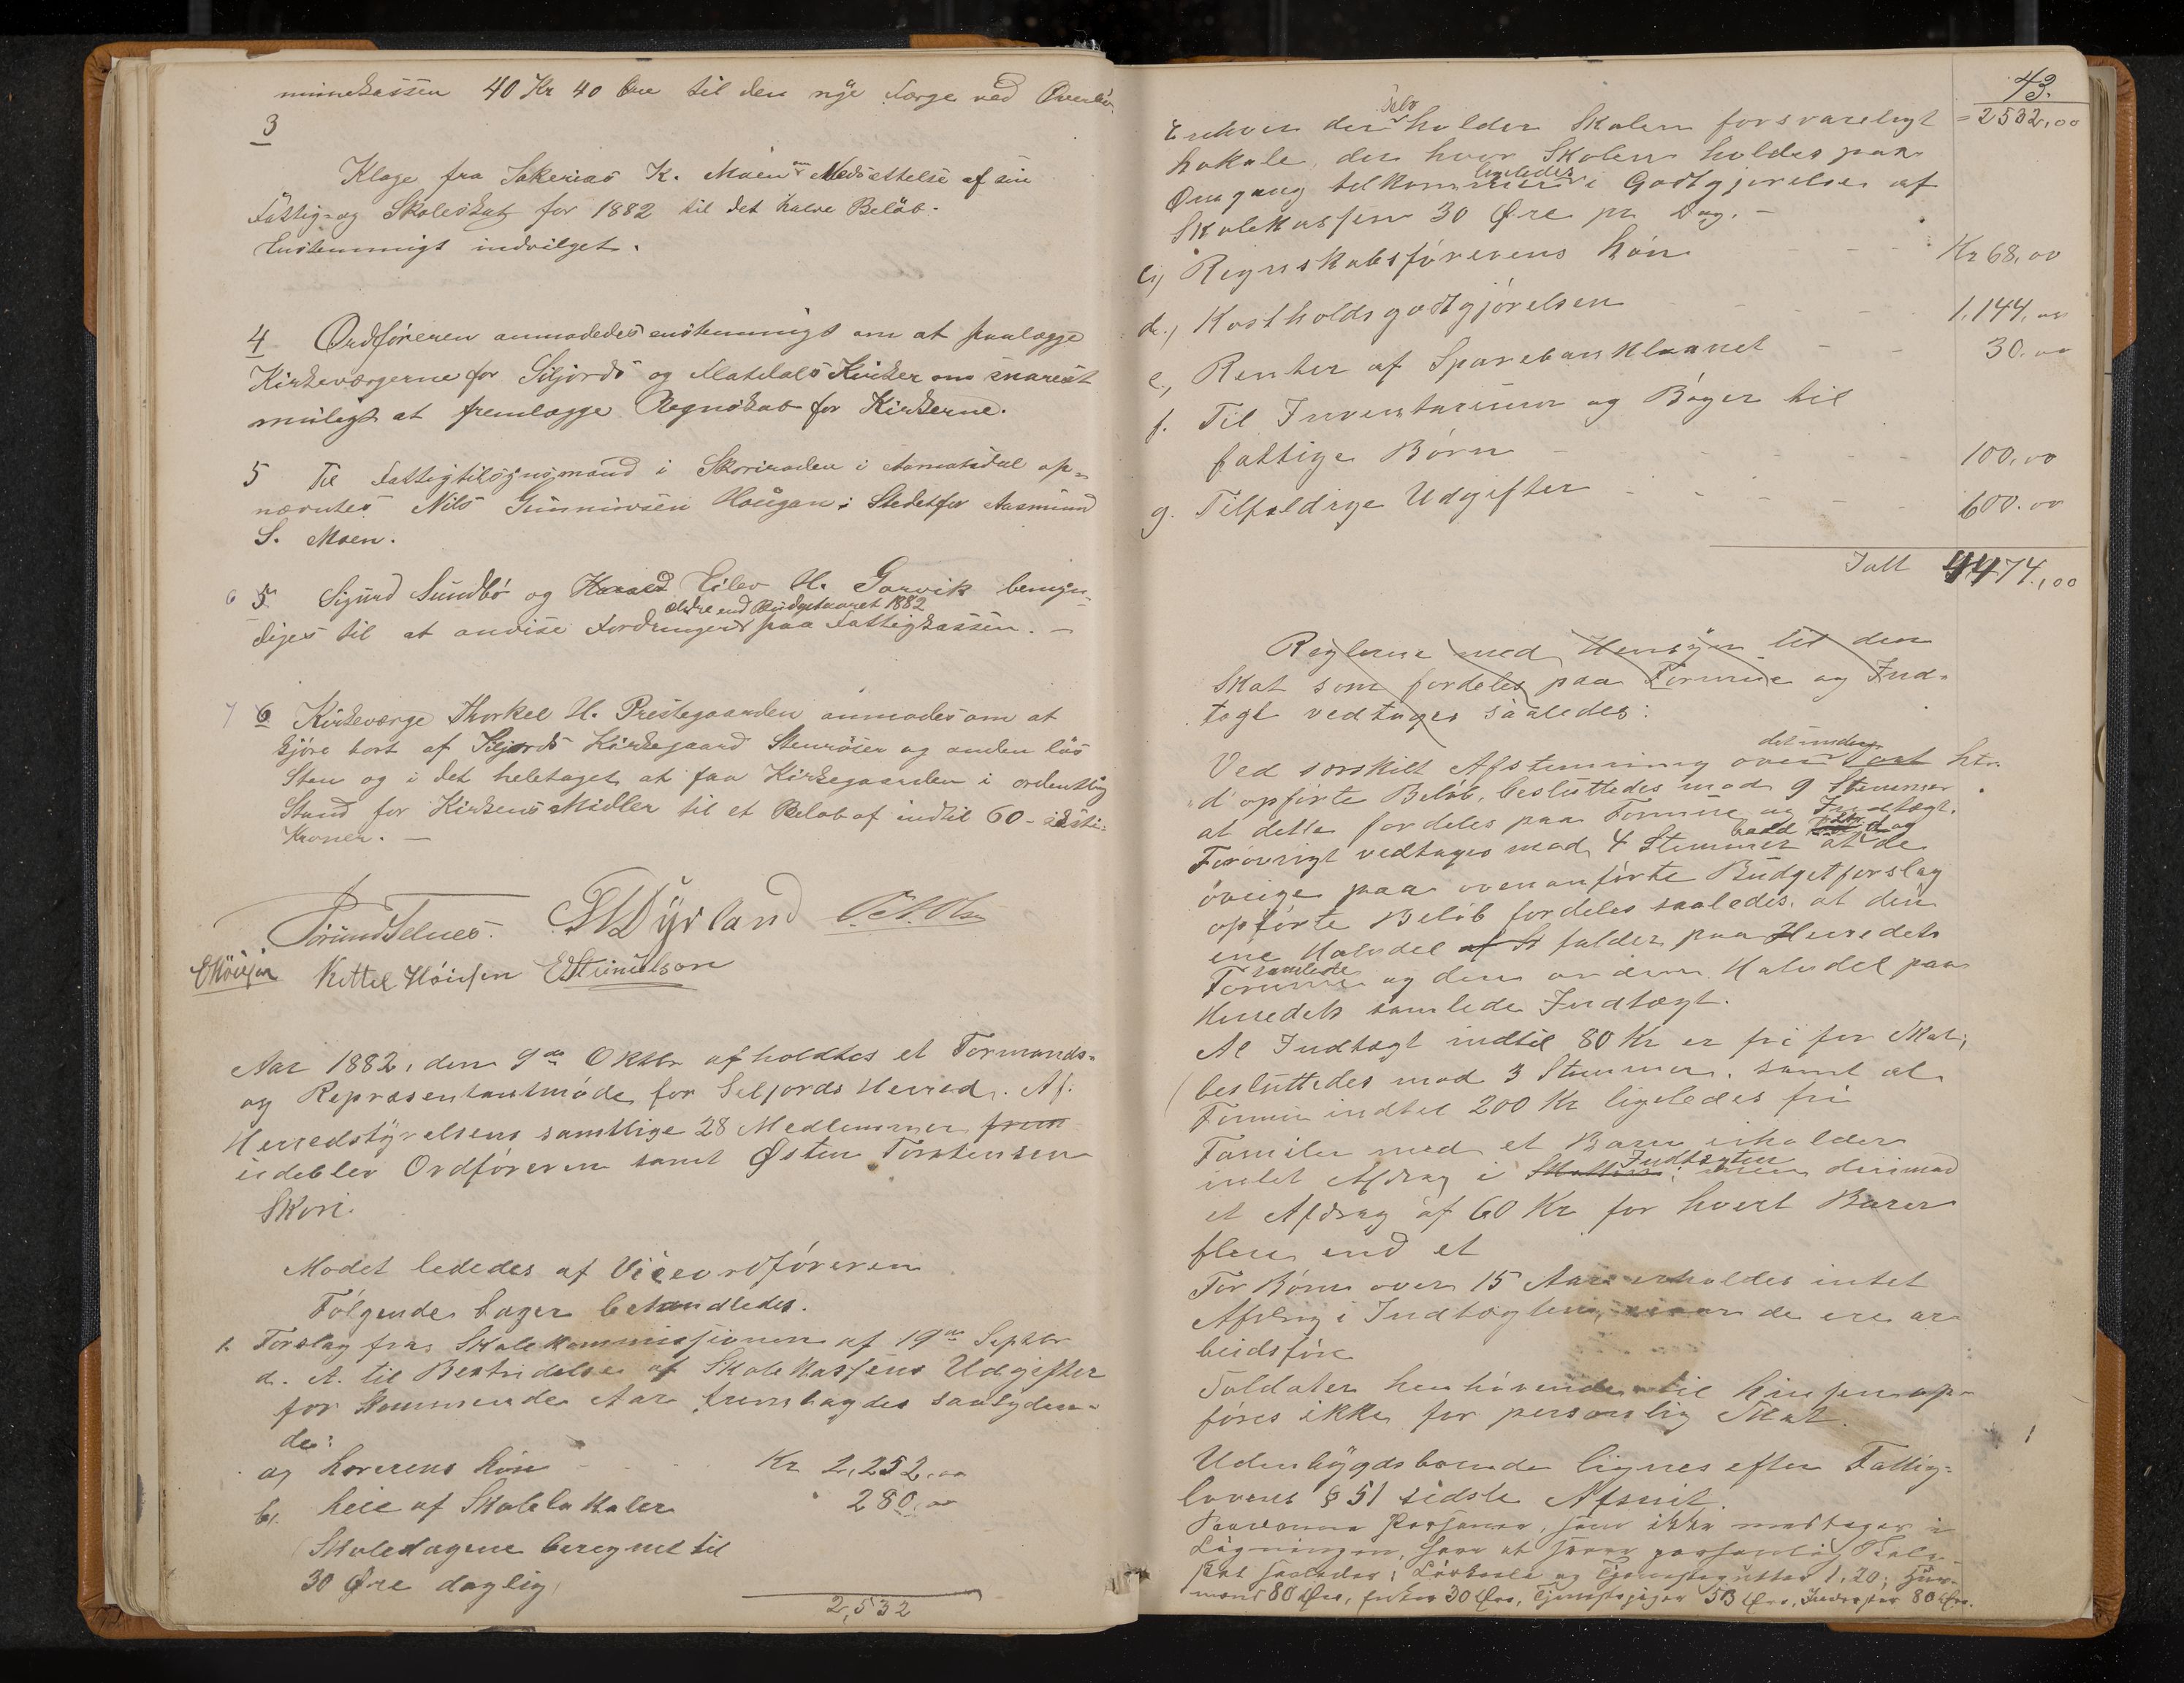 munekassen 40 Kr 40 Øre til den nye Færge ved
3
Klage fra Sakerias K. Moen om Nedsættelse af sin
Fattig- og Skoleskat for 1882 til det halve Beløb.
Enstemmigt indvilget.
4 Ordføreren anmodedes enstemmigt om at paalægge
Kirkeværgerne for Siljords og Flatdals Kirker om snarest
muligt at fremlægge Regnskab for Kirkerne.
5 Til Fattigtilsynsmand i Skoriroden i Aamotsdal op-
nævntes Nils Gunnivsen Haugan i Stedetfor Aasmund
S. Moen.
6 5 Sigurd Sundbö og Harald Eilev H. Garvik bemyn-
ældre end Budgetaaret 1882
diges til at anvise Fordringer paa Fattigkassen. —
7 6 Kirkeværge Thorkel H. Prestegaarden anmodes om at
kjöre bort af Siljords Kirkegaard Stenröser og anden lös
Sten og i det heletaget at faa Kirkegaarden i ordentlig
Stand for Kirkens Midler til et Beløb af indtil 60 - seksti-
Kroner. —
Törund Telnes. Dyrland
Kittel Höidsen
Aar 1882, den 9de Oktbr afholdtes et Formands-
og Repræsentantmøde for Seljords Herred. Af
Herredstyrelsens samtlige 28 Medlemmer frem
udeblev Ordføreren samt Østen Torstensen
Skori.
Mødet lededes af Viceordföreren
Fölgende Sager behandledes.
1. Forslag fra Skolekommissionen af 19de Septbr
d. A. til Bestridelse af Skolekassens Udgifter
for kommende Aar fremlagdes saalyden-
de:
a, Lærerens Lön Kr 2,252,00
b, Leie af Skolelokaler 280,00
Skoledagene beregnet til
30 Øre daglig,
2,532
43.
Selv
Enhver der holder Skolen forsvareligt = 2532,00
Lokale, der hvor Skolen holdes paa
ligeledes
Omgang tilkommer i Godtgjørelse af
Skolekassen 30 Øre pr Dag. —
c, Regnskabsförerens Lön Kr 68,00
d., Kostholdsgodtgjörelsen 1.144,00
e, Renter af Sparebanklaanet 30.00
f. Til Inventarium og Böger til
fattige Börn 100,00
g. Tilfældige Udgifter 600.00
Ialt 4474,00
Reglerne med Hensyn til den
Skat som fordeles paa Formue og Ind-
tægt vedtages saaledes:
det under
Ved særskilt Afstemning over htr.
d opförte Belöb, besluttedes mod 9 Stemmer
at dette fordeles paa Formue og Indtægt.
Forövrigt vedtages mod 4 Stemmer at de
övrige paa ovenanförte Budgetforslag
opförte Belöb fordeles saaledes, at den
ene Halvdel af falder paa Herredets
samlede
Formue og den anden Halvdel paa
Herredets samlede Indtægt.
Al Indtægt indtil 80 Kr er fri for Skat,
besluttedes mod 3 Stemmer. samt at
Formue indtil 200 Kr ligeledes fri
Familer med et Barn erholder
Indtægten
intet Afdrag i Skatten; men derimod
et Afdrag af 60 Kr for hvert Barn
flere end et
For Börn over 15 Aar erholdes intet
Afdrag i Indtægten, naar de ere ar
beidsföre
Soldater henhörende til Linjen op-
föres ikke for personlig Skat.
Udenbygdsboende lignes efter Fattig-
lovens § 51 sidste Afsnit.
Saadanne Personer, som ikke medtages i
Ligningen, svare personlig Skole-
skat saaledes; Löskarle og Tjenestegutter 1,20; Huus-
mænd 80 Øre, Enker 30 Øre, Tjenestepiger 53 Øre, Inderster 80 Øre.